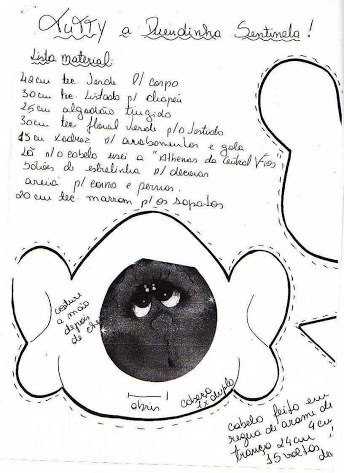 Tutty a Duendinha Sentinela!
Lista material
42cm tec. verde p/ corpo
30cm tec. listado p/ chapéu
25cm algodão tingido
30cm tec floral verde p/ o vestido
15cm xadrez p/ arabamentos e gola
lã p/ o cabelo usei a "Athenas da Central Fios"
botões de estrelinha p/ decorar
areia p/ corpo e pernas.
20cm tec. marrom p/ os sapatos
costure
a mão
depois
de
abrir
cabeça
1x duplo
cabelo feito em
regua de arame de
trança 24cm 4cm
15 voltas